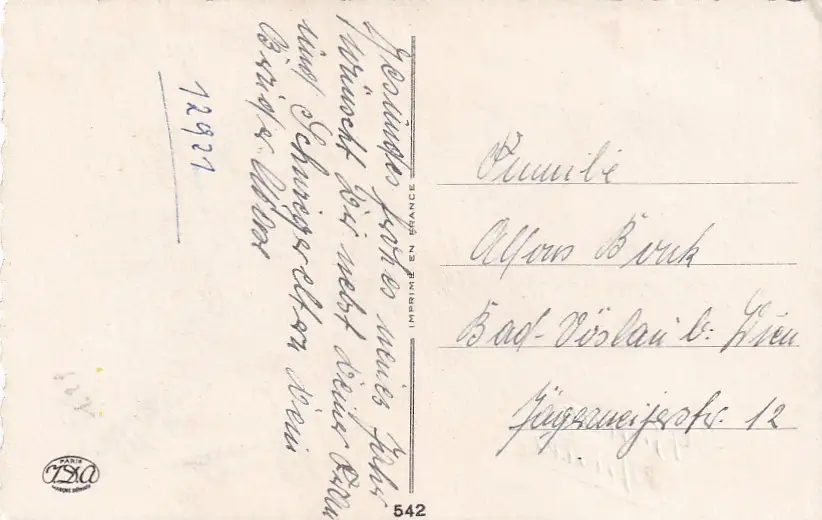 Gesundes frohes neues Jahr
wünscht Dir nebst deiner Frau
und Schwiegereltern Dein
Bruder
12921
IMPRIMÉ EN FRANCE
Familie
Alfons Bonk
Bad-Vöslau b: Wien
Jägermeijerstr. 12
PARIS
IDA
542